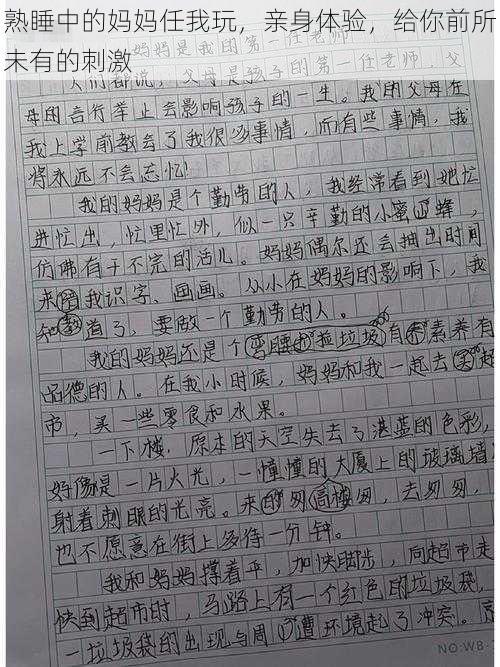 熟睡中的妈妈任我玩，亲身体验，给你前所
未有的刺激
妈妈是我的第一任老师
人们都说，父母是孩子的第一任老师，父
母的言行举止会影响孩子的一生。我的父母在
我上学前教会了我很多事情，而有些事情，我
将永远不会忘忆！
我的妈妈是个勤劳的人，我经常看到她忙
进忙出，忙里忙外，似一只辛勤的小蜜蜂，
仿佛有干不完的活儿。妈妈偶尔还会抽出时间
来陪我识字、画画。从小在妈妈的影响下，我
知道了，要做一个勤劳的人。
我的妈妈还是个有素养有
品德的人。在我小时候，妈妈和我一起去超
市，买一些零食和水果。
一下楼，原本的天空失去了湛蓝的色彩，
好像是一片火光，一幢幢的大厦上的玻璃墙
射着刺眼的光亮。来匆匆，去匆匆，
也不愿意在街上多待一分钟。
我和妈妈撑着伞，加快脚步，向超市走
快到超市时，马路上有一个红色的垃圾袋，
一垃圾袋的出现与周遭环境起了冲突。
NO:WB-